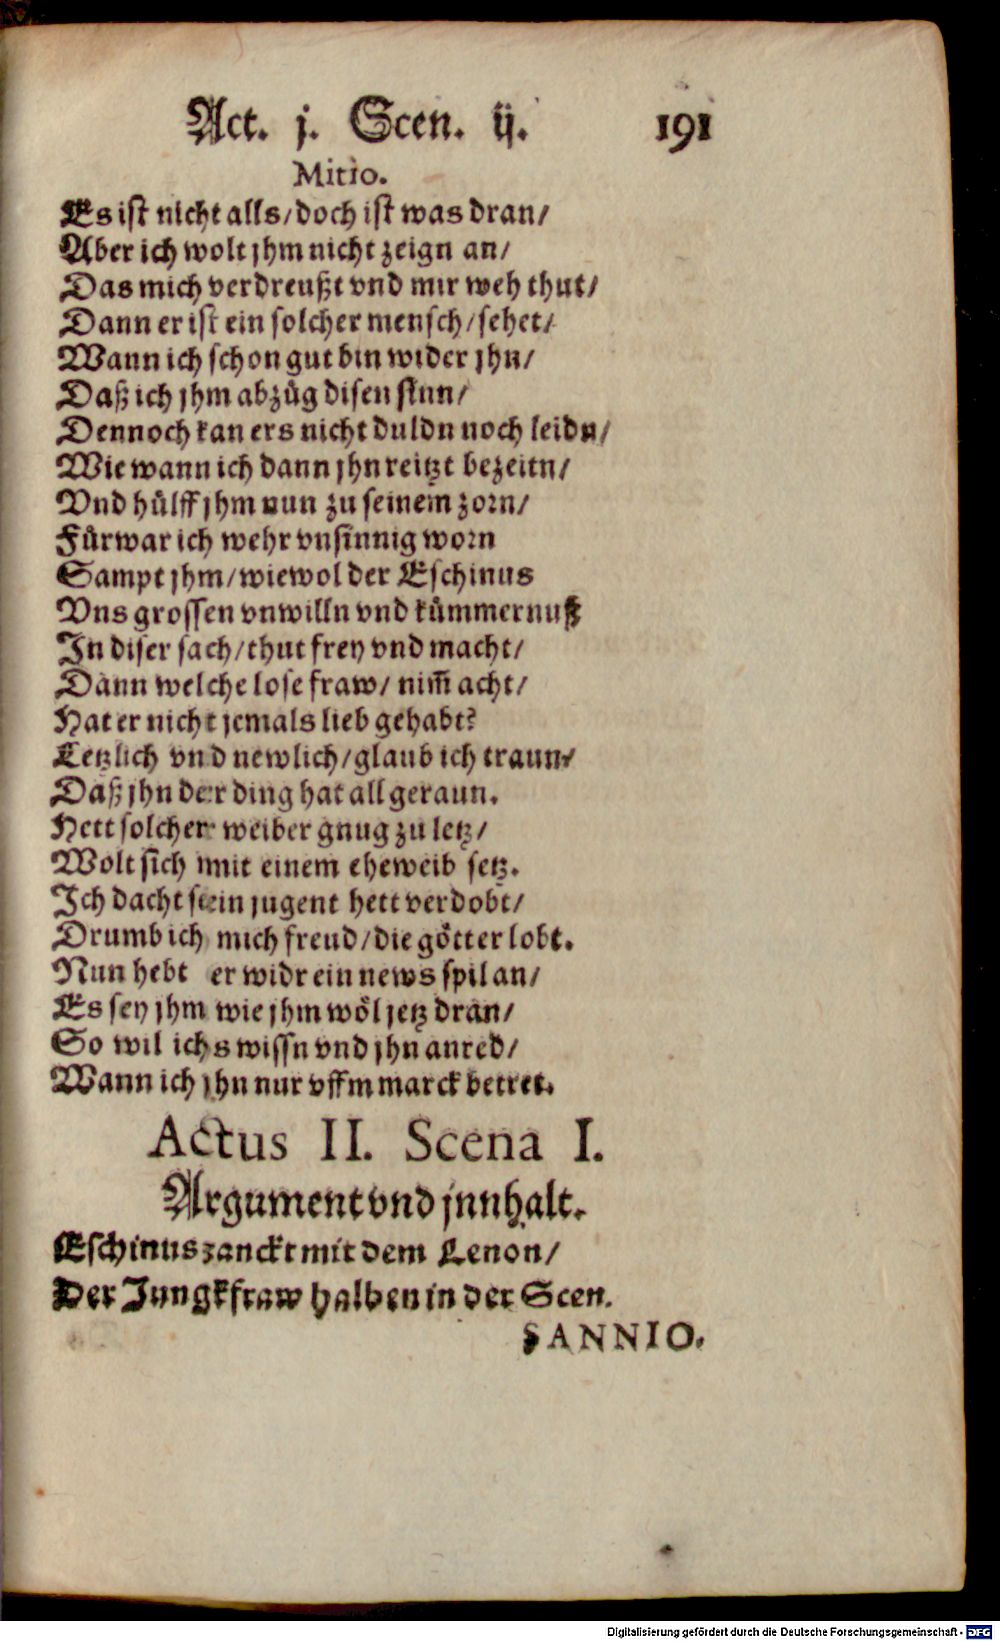 Act. j. Scen. ij. 191
Mitio.
Es ist nicht alls/doch ist was dran/
Aber ich wolt jhm nicht zeign an/
Das mich verdreußt vnd mir weh thut/
Dann er ist ein solcher mensch/sehet/
Wann ich schon gut bin wider jhn/
Daß ich jhm abzüg disen sinn/
Dennoch kan ers nicht duldn noch leidn/
Wie wann ich dann jhn reitzt bezeitn/
Vnd hülff jhm nun zu seinem zorn/
Fürwar ich wehr vnsinnig worn
Sampt jhm/wiewol der Eschinus
Vns grossen vnwilln vnd kümmernuß
In diser sach/thut frey vnd macht/
Dann welche lose fraw/ nim̃ acht/
Hat er nicht jemals lieb gehabt?
Letzlich vnd newlich/glaub ich traun/
Daß jhn der ding hat all geraun.
Hett solcher weiber gnug zu letz/
Wolt sich mit einem eheweib setz.
Ich dacht sein jugent hett verdobt/
Drumb ich mich freud/die götter lobt.
Nun hebt er widr ein news spil an/
Es sey jhm wie jhm wöl jetz dran/
So wil ichs wissn vnd jhn anred/
Wann ich jhn nur vffm marck betret.
Actus II. Scena I.
Argument vnd jnnhalt.
Eschinus zanckt mit dem Lenon/
Der Jungkfraw halben in der Scen.
SANNIO.
Digitalisierung gefördert durch die Deutsche Forschungsgemeinschaft - DFG